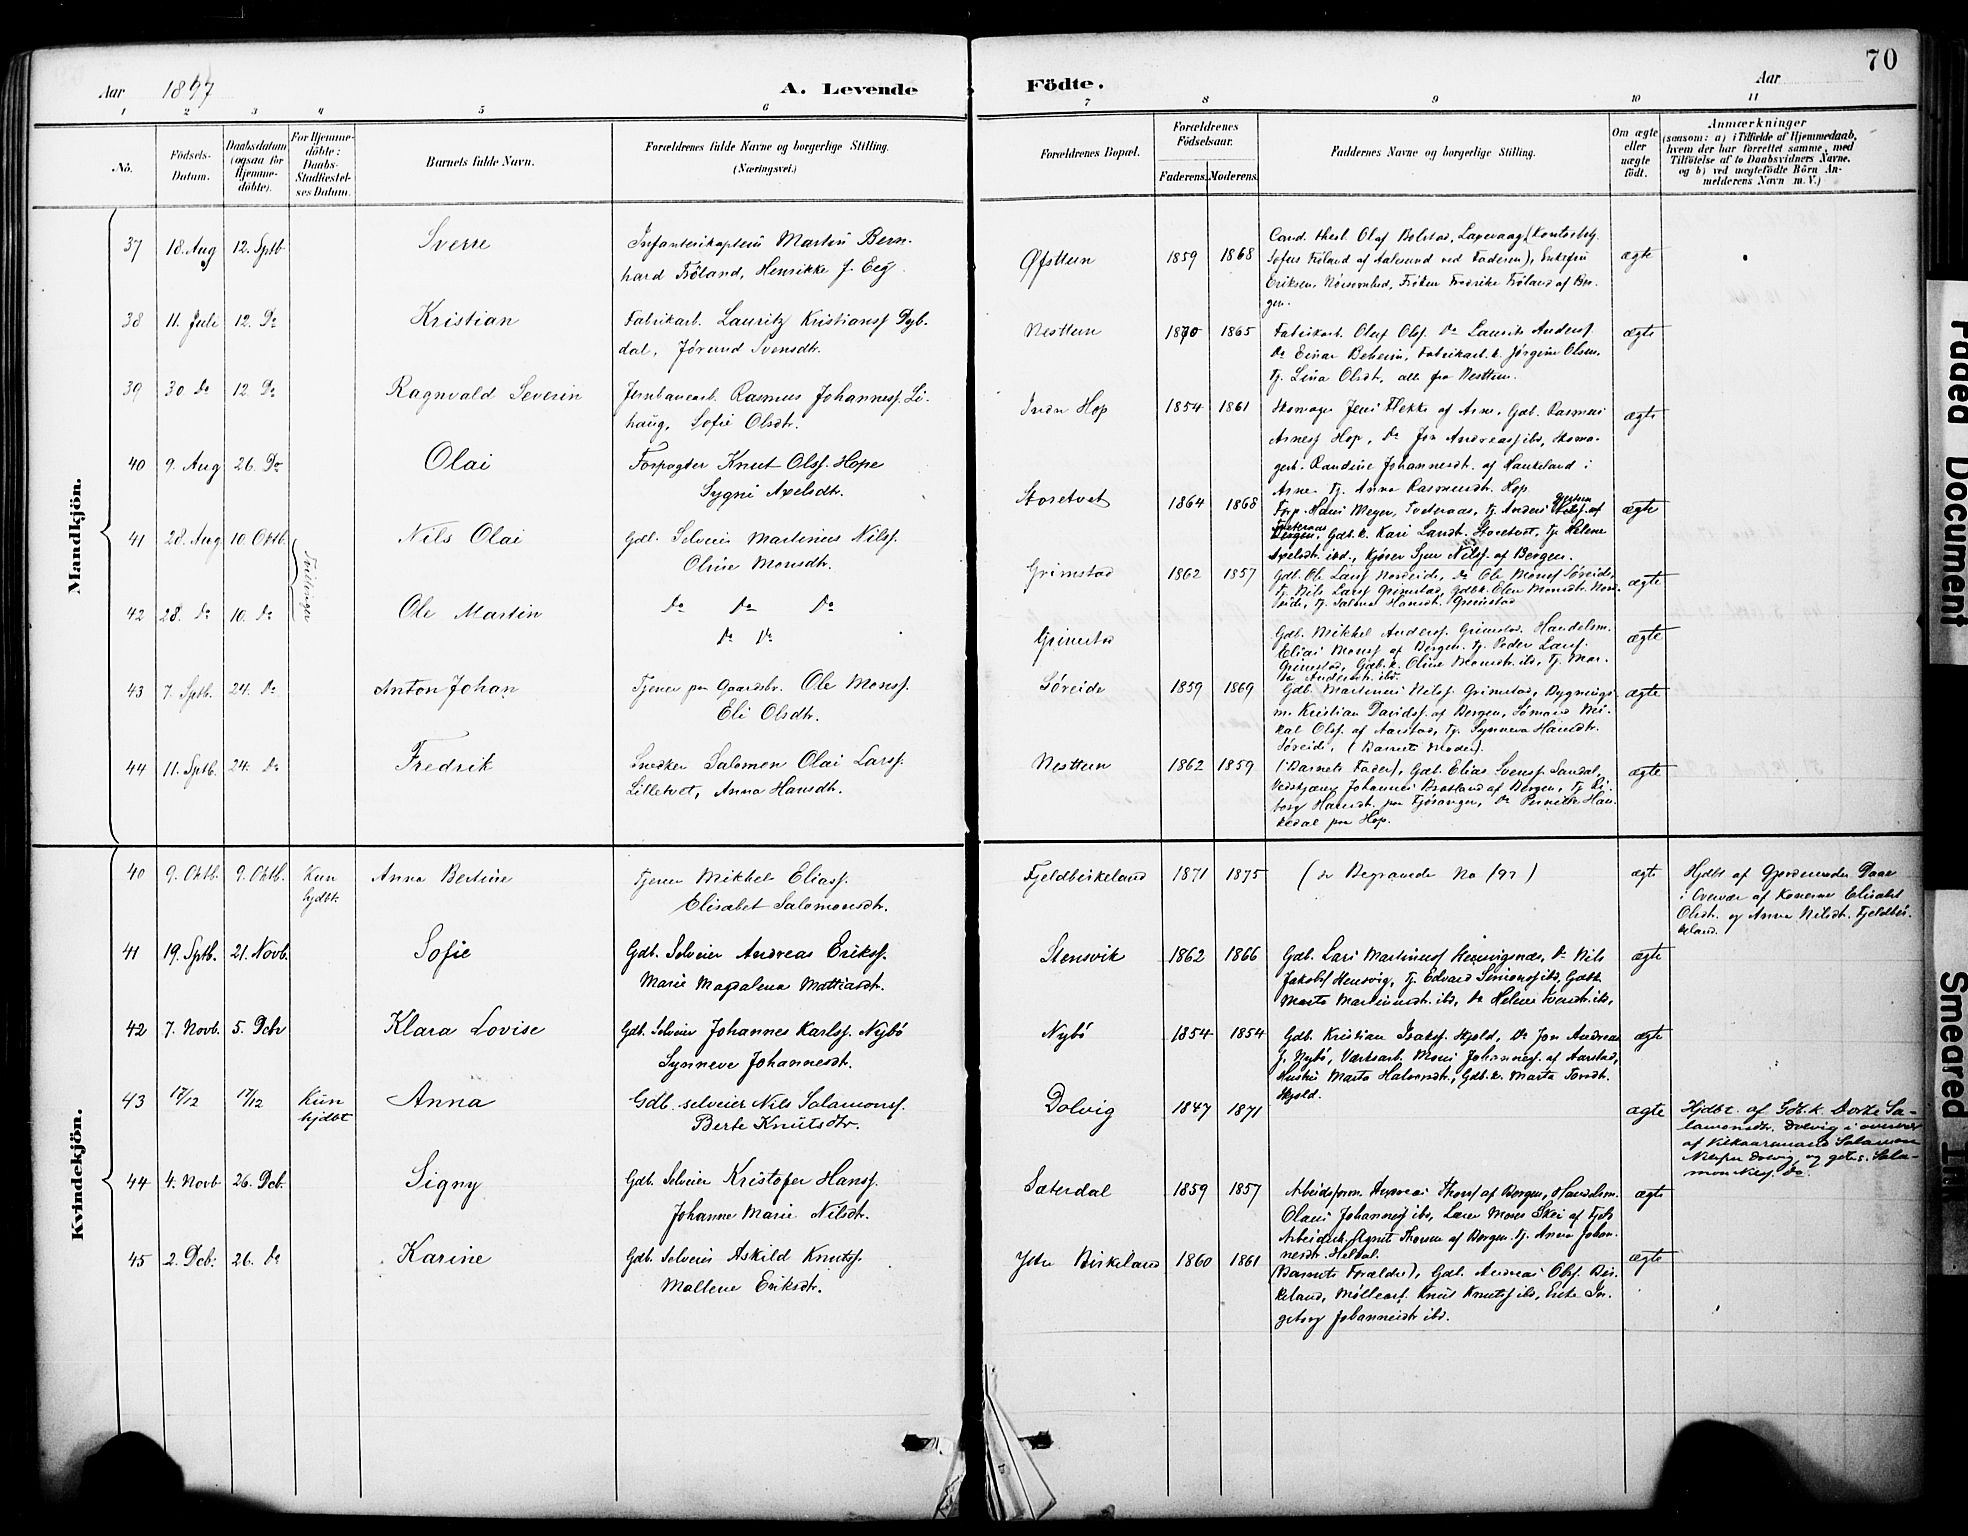 70
Aar 1897 A. Levende Födte. Aar
1 2 3 4 5 6 7 8 9 10 11
No.
Födsels-
Datum.
Daabsdatum
(ogsaa for
Hjemme-
döbte).
For Hjemme-
döbte:
Daabs-
Stadfæstel-
ses Datum.
Barnets fulde Navn.
Forældrenes fulde Navne og borgerlige Stilling.
(Næringsvei.)
Forældrenes Bopæl.
Forældrenes
Födselsaar.
Faderens. Moderens.
Faddernes Navne og borgerlige Stilling.
Om ægte
eller
uægte
födt.
Anmærkninger
(saasom: a) i Tilfælde af Hjemmedaab,
hvem der har forrettet samme, med
Tilföielse af to Daabsvidners Navne,
og b) ved uægtefödte Börn An-
melderens Navn m. V.)
Mandkjön.
37 18. Aug 12. Sptb. Sverre
Infanterikaptein Martin Bern-
hard Fröland, Henrikke J. Eeg.
Øfsttun 1859 1868
Cand. theol. Olaf Bolstad, Laxevaag,
Sofus Fröland af Aalesund ved Faderen), Enkefru
Eriksen, Fröken Fredrike Fröland af Ber-
gen.
ægte
38 11. Juli 12. Do Kristian
Fabrikarb. Lauritz Kristiansf. Dyb-
dal, Jörund Svensdtr.
Nesttun 1870 1865
Fabrikarb. Oluf Olsf. Do Laurits Andersf.
Do Einar Beheim, Fabrikarb.k. Jörgine Olsen,
Tj. Lina Olsdt, alle fra Nesttun.
ægte
39 30. Do 12. Do Ragnvald Severin
Jernbanearb. Rasmus Johannesf. Li-
haug, Sofie Olsdtr.
Indr Hop 1854 1861
Skomager Jens Flekke af Arne, Gdb. Rasmus
Arnesf Hop, Do Jon Andreasf ibd, Skoma-
gerk. Randine Johannesdt. af Haukeland i
Arne. Tj. Anna Rasmusdt. Hop.
ægte
40 9. Aug 26. Do Olai
Forpagter Knut Olsf. Hope
Sygni Axelsdtr.
Storetvet 1864 1868
Forp. Hans Meyer, Tveteraas, Tj. Anders Nilsf. af
Bergen, Gdb.k. Kari Landt. Storetvet, Tj. Helene
Axelsdt. ibd., Kjörer Sjur Nilsf. af Bergen.
ægte
41 28. Aug 10. Oktb. Tvillinger Nils Olai
Gdb. Selveier Martinus Nilsf.
Oline Monsdtr.
Grimstad 1862 1857
Gdb. Ole Larsf Nordeide, Do Ole Monsf Söreide,
Tj. Nils Larsf Grimstad, Gdbk. Elen Monsdtr. Nord-
eide, Tj. Salmo Hansdt. Grimstad
ægte
42 28. Do 10. Do Ole Martin
Do Do Do
Do Do
Grimstad
Gdb. Mikkel Andersf. Grimstad, Handelsm.
Elias Monsf af Bergen. Tj. Peder Larsf.
Grimstad, Gdb.k. Oline Monsdt. ibd, Tj. Mar-
ta Andersdt. ibd.
ægte
43 7. Sptb. 24. Do Anton Johan
Tjener paa Gaardsbr. Ole Monsf.
Eli Olsdtr.
Söreide 1859 1869
Gdb. Martinus Nilsf. Grimstad, Bygnings-
m. Kristian Davidsf. af Bergen, Sömand Mi-
kal Olsf. af Aarstad, Tj. Synneva Hansdt.
Söreide, (Barnets Moder).
ægte
44 11. Sptb. 24. Do Fredrik
Snedker Salomon Olai Larsf.
Lilletvet, Anna Hansdt.
Nesttun 1862 1859
(Barnets Fader), Gdb. Elias Svensf. Sandal,
Johannes Bratland af Bergen, Tj. Li-
borg Hansdt. paa Fjösanger, Do Pernille Hau-
kedal paa Hop.
ægte
Kvindekjön.
40 9. Oktb. 9. Oktb. Kun
hjdbt. Anna Bertine
Tjener Mikkel Eliasf.
Elisabet Salomonsdtr.
Fjeldbirkeland 1871 1875
(se Begravede No 197) ægte
Hjdbt af Gjordemoder Daae
i Overvær af Konerne Elisabet
Olsdt. og Anna Nilsdt. Fjeldbir-
keland.
41 19. Sptb. 21. Novb. Sofie
Gdb. Selveier Andreas Eriksf.
Marie Magdalena Mattiasdt.
Stensvik 1862 1866
Gdb. Lars Martinusf Nils
Jakobsf Tj. Edvard Simonsf ibd, Gdbk.
Marta Martinusdt. ibd, Do Helene ibd,
ægte
42 7. Novb. 5. Dcbr Klara Lovise
Gdb. Selveier Johannes Karlsf. Nybö
Synneve Johannesdt.
Nybö 1854 1854
Gdb. Kristian Isaksf. Skjold, Do Jon Andreas-
f. Nybö, Værksarb. Mons Johannesf. af Aarstad,
Hustru Marta Halvorsdt., Gdb.k. Marta
Skjold.
ægte
43 17/12 17/12 Kun
hjdbt Anna
Gdb. selveier Nils Salamonsf.
Berte Knutsdtr.
Dolvig 1847 1871 ægte
Hjdbt. af Gdb.k. Dorte Sa-
lamonsdt. Dolvig i overvær
af Kilkaarmand Salamon
Nilsf Dolvig og gdb.s. Sala-
mon Nilsf. Do.
44 4. Novb 26. Dcb. Signy
Gdb. Selveier Kristofer Hansf.
Johanne Marie Nilsdt.
Sæterdal 1859 1857
Arbeidsform. Andreas Thorsf af Bergen, Handelsm.
Olaus Johannesf ibd, Lærer Mons Skei af
Arbeidsk. Agnet Thorsen af Bergen. Tj. Anna Johan-
nesdt. Heldal.
ægte
45 2. Dcb. 26. Do Karine
Gdb. Selveier Askild Knutsf.
Mallene Eriksdtr.
Ytre Birkeland 1860 1861
(Barnets Forældre), Gdb. Andreas Olsf. Bir-
keland, Möllearb. Knut Knutsf ibd, Enke In-
geborg Johannesdt ibd.
ægte
Faded Document
Smeared Ink